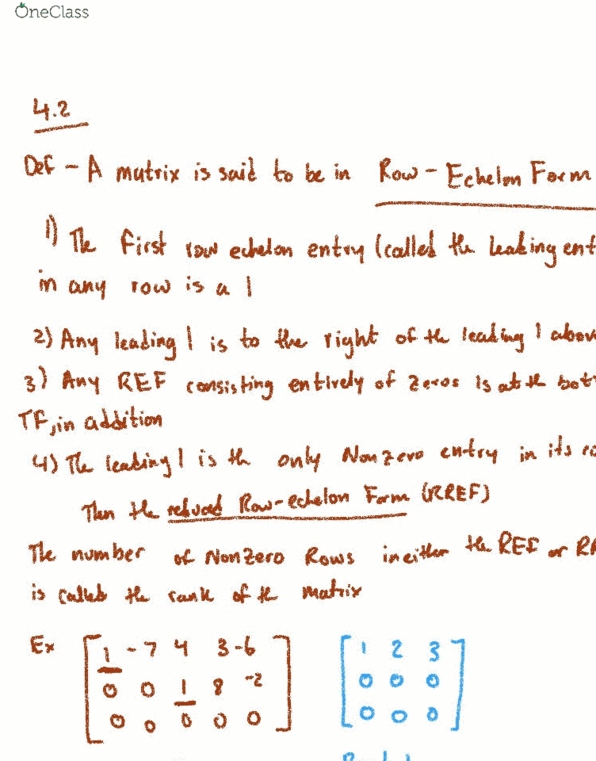 OneClass
4.2
Def - A matrix is said to be in Row - Echelon Form
1) The first row echelon entry (called the leading ent
in any row is a 1
2) Any leading 1 is to the right of the leading 1 above
3) Any REF consisting entirely of zeros is at the bot
If, in addition
4) The leading 1 is the only Nonzero entry in its co
Then the reduced Row-echelon Form (RREF)
The number of Nonzero Rows in either the REF or RR
is called the rank of the matrix
Ex 1 -7 4 3 -6 1 2 3
0 0 1 8 -2 0 0 0
0 0 0 0 0 0 0 0